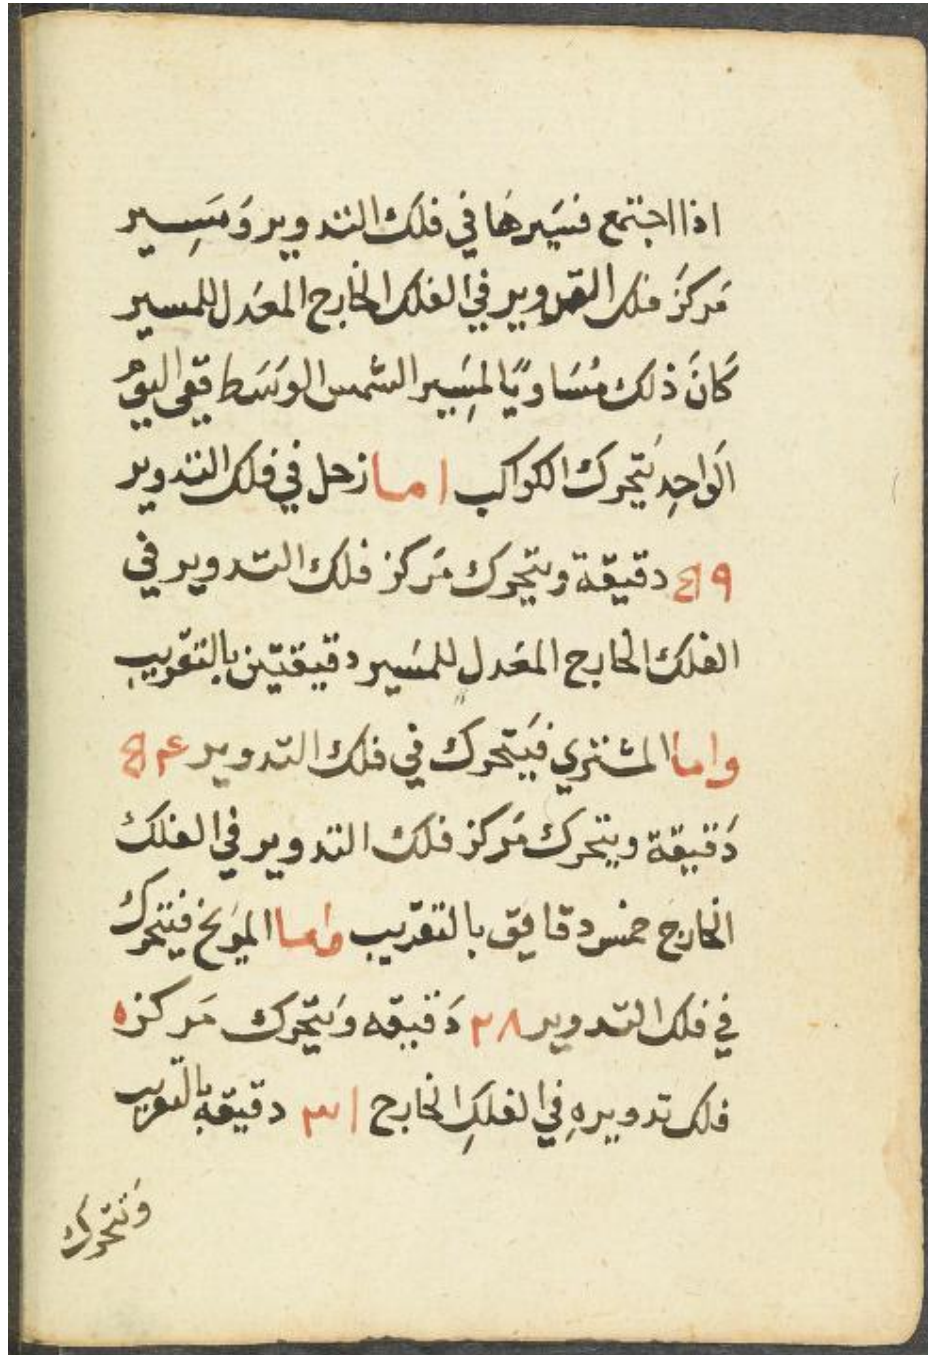 اذا اجتمع فسَيرهَا في فلك التدوير وَمسَِير
مَركزَ فلك التدوير في الفلك الخارج المعَدل للمسير
كَانَ ذلك مُسَاويًا لمسِيَر الشمس الوسَط ففى اليوم
الَواحِد يَتحرك الكواكب اما زحل في فلك التدوير
٥٧ دقيقة ويتحرك مَركز فلك التدوير في
الفلك الخارج المعَدل للمسَير دقيقتين بالتقريب
واما المشتري فيَتحرك في فلك التدوير ٥٤
دَقيقة ويتحرك مَركز فلك التدوير في الفلك
الخارجَ خمس دقايق بالتقريب واما المرَيخ فيتحرك
في فلك التدوير ٢٨ دَقيقه وَيتحرك مَركزه
فلك تدويرهِ في الفلكِ الخارج ٣١ دقيقة بالتقريب
وَتتحرك